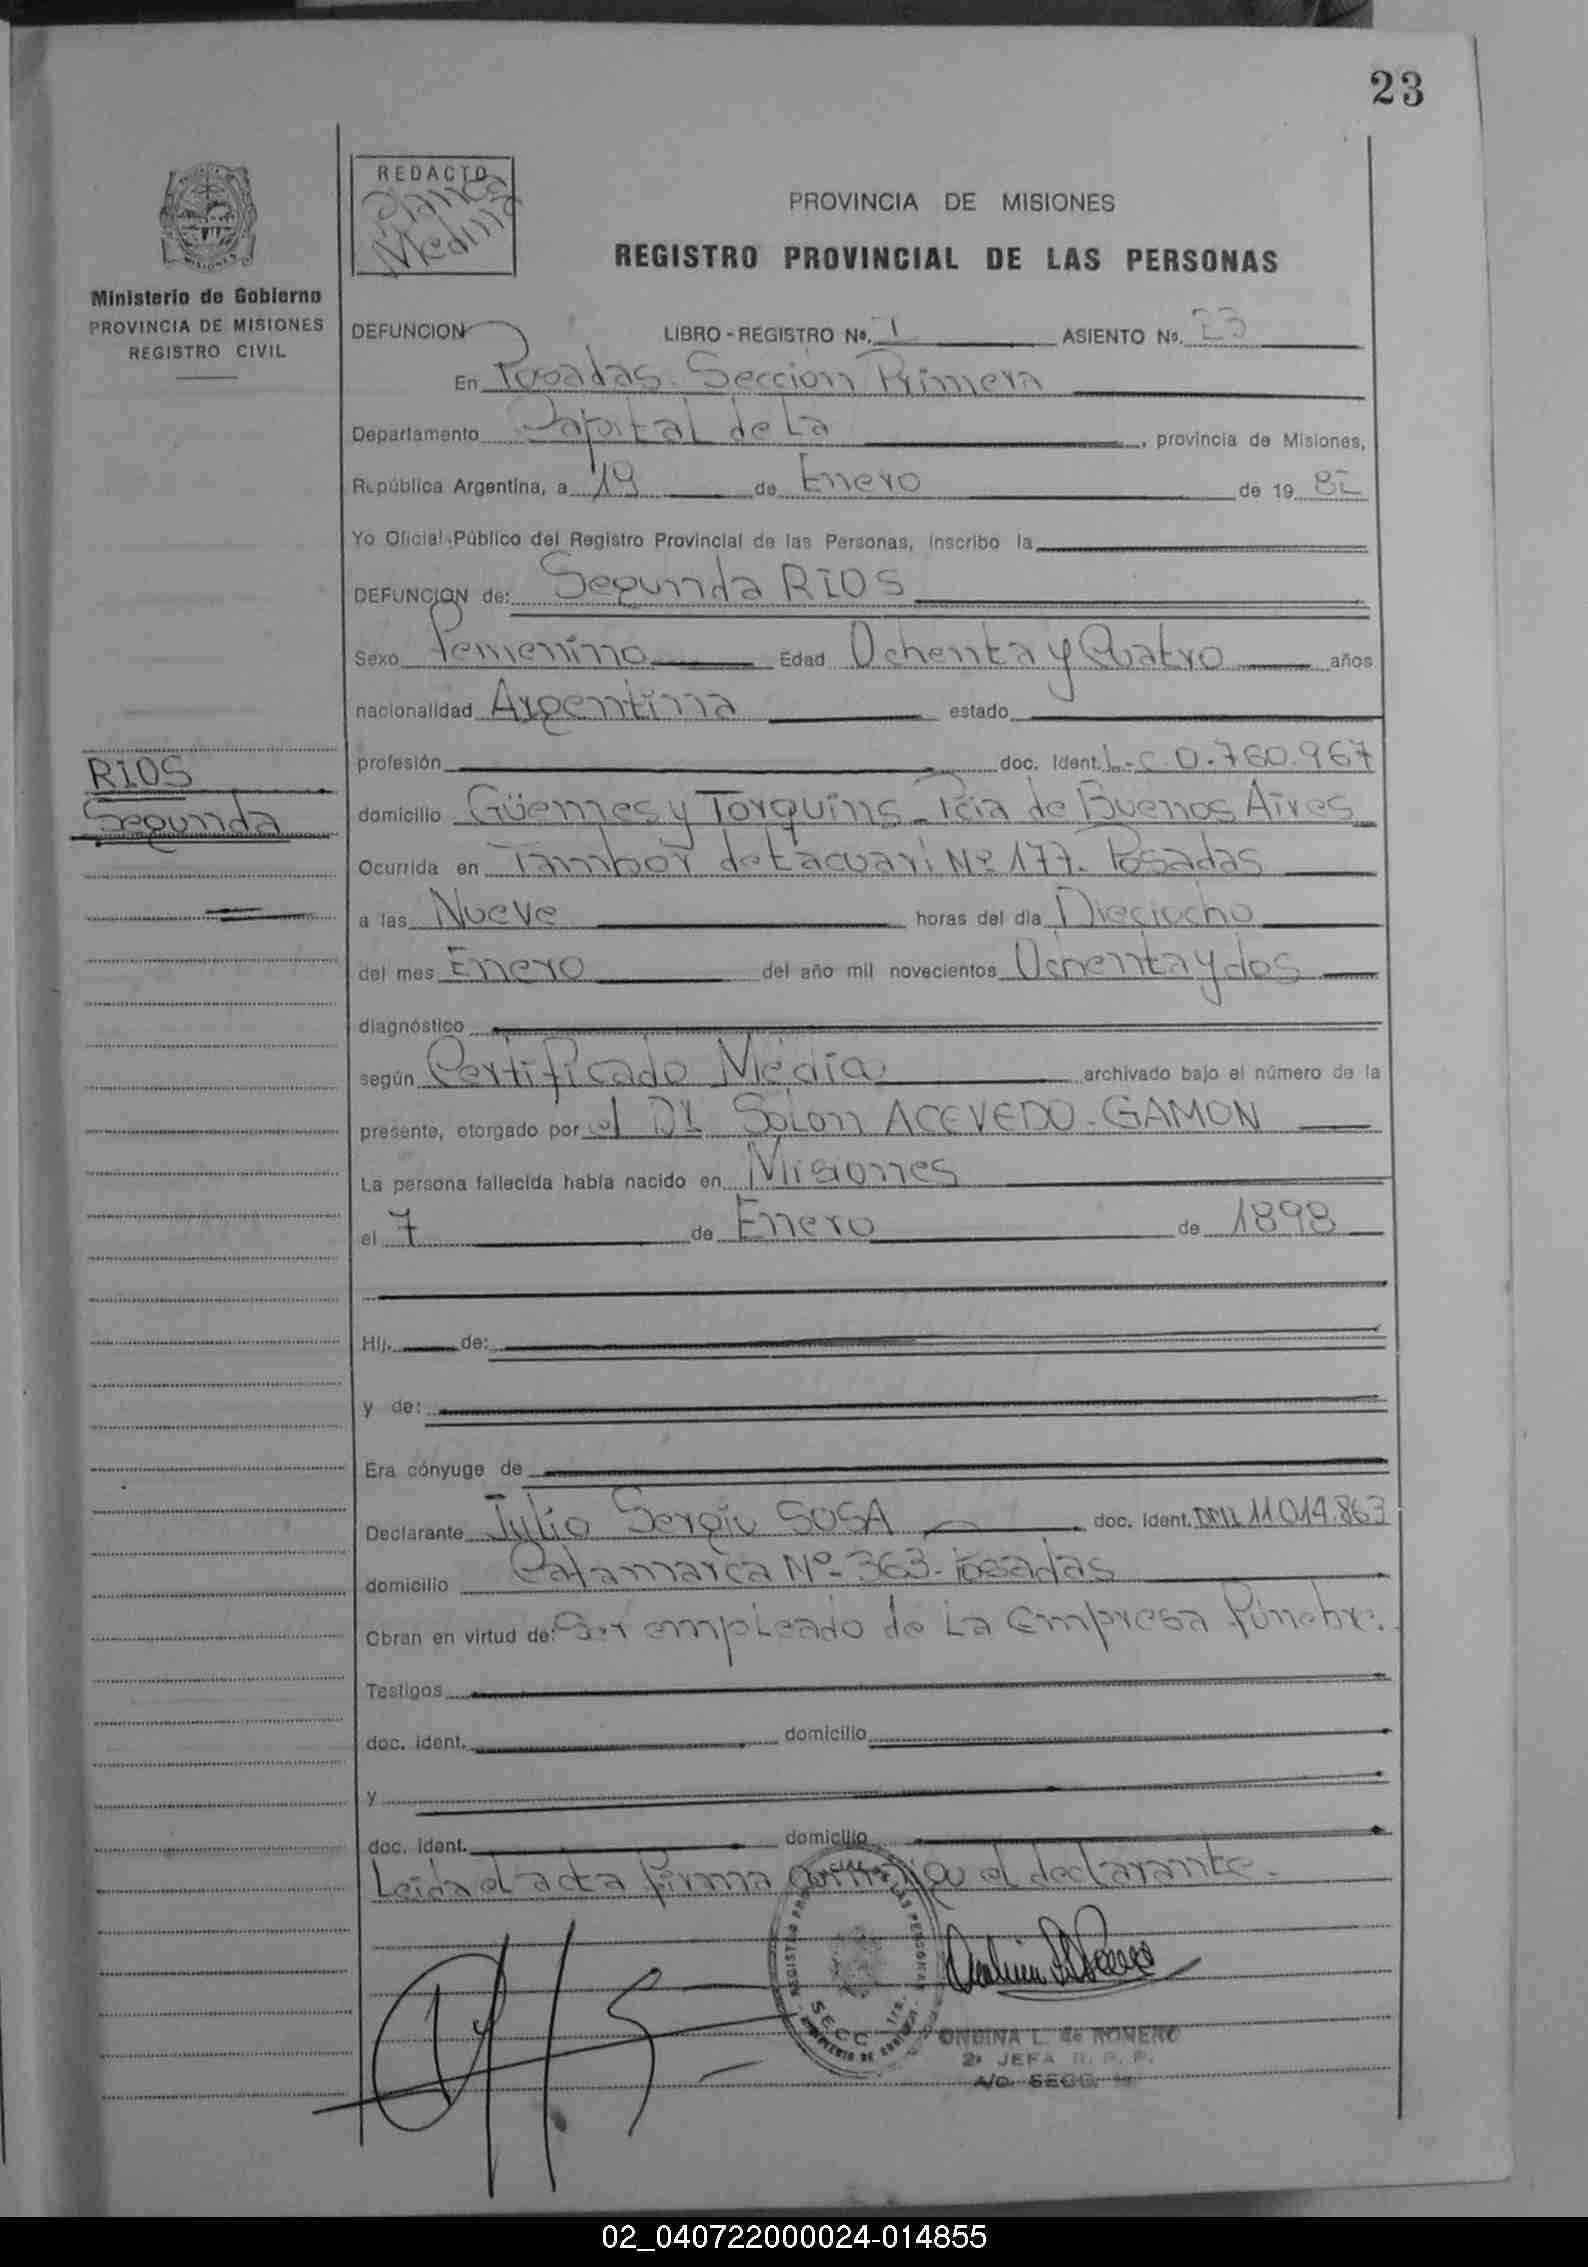 23
REDACTO
Blanca
Medina
PROVINCIA DE MISIONES
REGISTRO PROVINCIAL DE LAS PERSONAS
MISIONES
Ministerio de Gobierno
PROVINCIA DE MISIONES
REGISTRO CIVIL
DEFUNCION LIBRO - REGISTRO No. I ASIENTO No. 23
En Posadas. Sección Primera
Departamento Capital de La, provincia de Misiones,
República Argentina, a 19 de Enero de 19 82
Yo Oficial Público del Registro Provincial de las Personas, inscribo la
DEFUNCION de: Segunda RIOS
Sexo Femenino Edad Ochenta y Cuatro años
nacionalidad Argentina estado
profesión doc. Ident. L.C. 0.760.967
RIOS
Segunda
domicilio Güemes y Torquins - Pcia de Buenos Aires
Ocurrida en Tambor de tacuari Nº 177. Posadas
a las Nueve horas del día Dieciocho
del mes Enero del año mil novecientos Ochenta y dos
diagnóstico
según Certificado Médico archivado bajo el número de la
presente, otorgado por el Dr. Solon ACEVEDO - GAMON
La persona fallecida había nacido en Misiones
el 7 de Enero de 1898
Hij. de:
y de:
Era cónyuge de
Declarante Julio Sergio SOSA doc. Ident. DNI. 11.014.863
domicilio Catamarca Nº 363 - Posadas
Obran en virtud de: Ser empleado de La Empresa fúnebre.
Testigos
doc. ident. domicilio
y
doc. ident. domicilio
Leida el acta firma conmigo el declarante.
REGISTRO PROVINCIAL DE LAS PERSONAS
SECC. 1ra.
ONDINA L. de ROMERO
2ª JEFA R. P. P.
A/C. SECC. 1ª
02_040722000024-014855